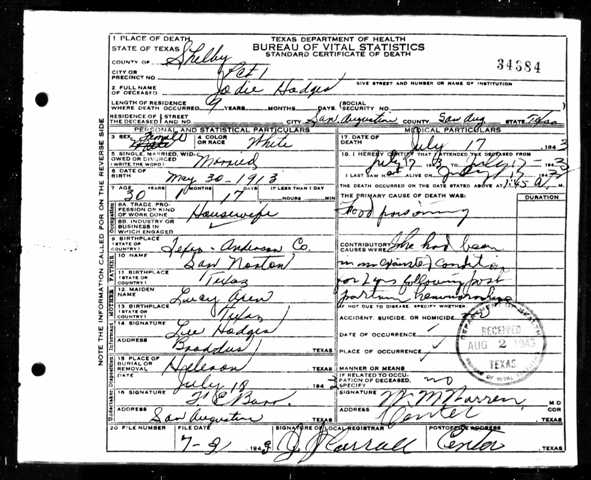 TEXAS DEPARTMENT OF HEALTH
BUREAU OF VITAL STATISTICS
STANDARD CERTIFICATE OF DEATH
34584
1 PLACE OF DEATH
STATE OF TEXAS
COUNTY OF Shelby
CITY OR PRECINCT NO. Pct 1
GIVE STREET AND NUMBER OR NAME OF INSTITUTION
2 FULL NAME OF DECEASED Jodie Hodges
LENGTH OF RESIDENCE WHERE DEATH OCCURRED 9 YEARS MONTHS DAYS (SOCIAL SECURITY NO.)
RESIDENCE OF THE DECEASED STREET AND NO. CITY San Augustine COUNTY San Aug STATE Texas
PERSONAL AND STATISTICAL PARTICULARS
3 SEX Female 4 COLOR OR RACE White
5 SINGLE, MARRIED, WIDOWED OR DIVORCED (WRITE) Married
6 DATE OF BIRTH May 30 - 1913
7 AGE 30 YEARS 1 MONTHS 17 DAYS IF LESS THAN 1 DAY HOURS MIN.
8A TRADE, PROFESSION OR KIND OF WORK DONE Housewife
8B INDUSTRY OR BUSINESS IN WHICH ENGAGED
9 BIRTHPLACE (STATE OR COUNTRY) Texas - Anderson Co.
10 NAME Sam Norton
11 BIRTHPLACE (STATE OR COUNTRY) Texas
12 MAIDEN NAME Lucy
13 BIRTHPLACE (STATE OR COUNTRY) Texas
14 SIGNATURE Lee Hodges
ADDRESS Broaddus TEXAS
15 PLACE OF BURIAL OR REMOVAL
DATE July 18 194
16 SIGNATURE
ADDRESS San Augustine TEXAS
MEDICAL PARTICULARS
17 DATE OF DEATH July 17 1943
18 I HEREBY CERTIFY THAT I ATTENDED THE DECEASED FROM
July 17 1943 TO July 17 - 1943
I LAST SAW H ALIVE ON July 17 1943
THE DEATH OCCURRED ON THE DATE STATED ABOVE AT 1:45 A. M.
THE PRIMARY CAUSE OF DEATH WAS: DURATION
Food poisoning
CONTRIBUTORY CAUSES WERE: She had been
in condition
for 2 yrs following post
partum hemorrhage
IF NOT DUE TO DISEASE, SPECIFY WHETHER:
ACCIDENT, SUICIDE, OR HOMICIDE
DATE OF OCCURRENCE
PLACE OF OCCURRENCE
MANNER OR MEANS
IF RELATED TO OCCUPATION OF DECEASED, SPECIFY no
SIGNATURE W. M. Warren M D
ADDRESS Center TEXAS
20 FILE NUMBER FILE DATE 7-2 1943 SIGNATURE OF LOCAL REGISTRAR POSTOFFICE ADDRESS Center TEXAS
RECEIVED
AUG 2 1943
TEXAS
BUREAU OF VITAL STATISTICS
NOTE THE INFORMATION CALLED FOR ON THE REVERSE SIDE